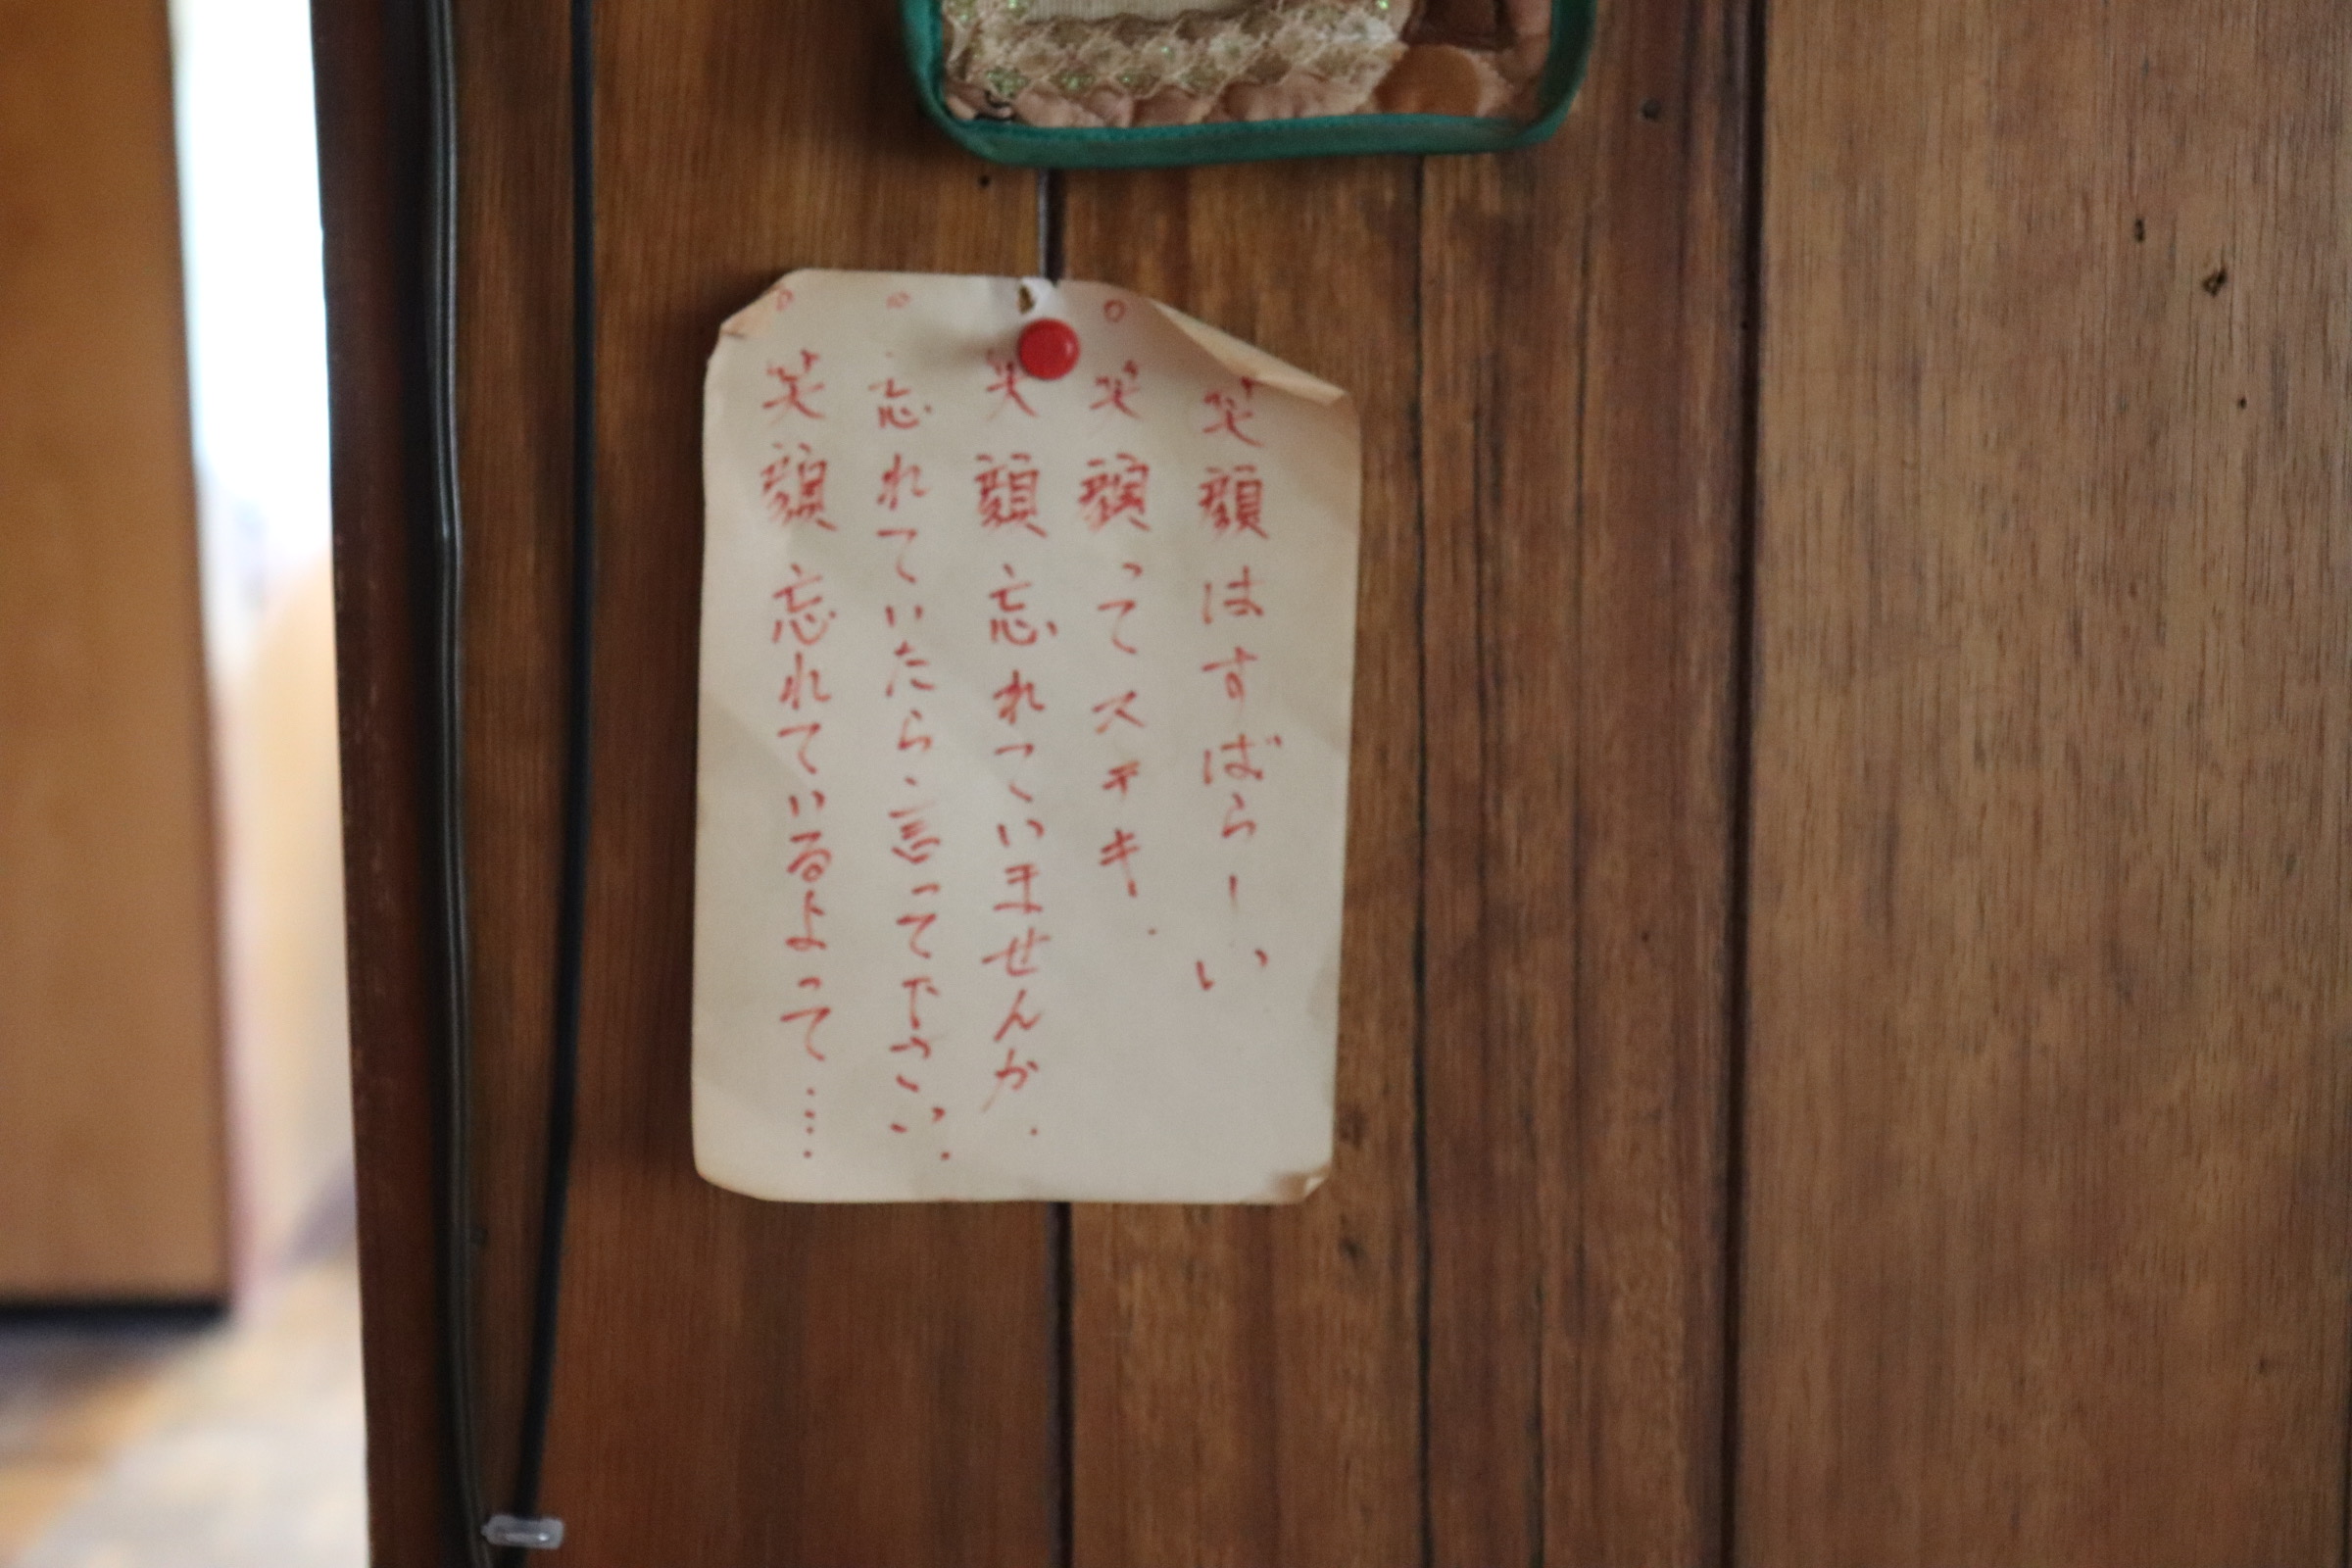 笑顔はすばらーい
○笑顔ってステキ.
笑顔忘れていませんか.
○忘れていたら、言って下さい.
○笑顔忘れているよって.....